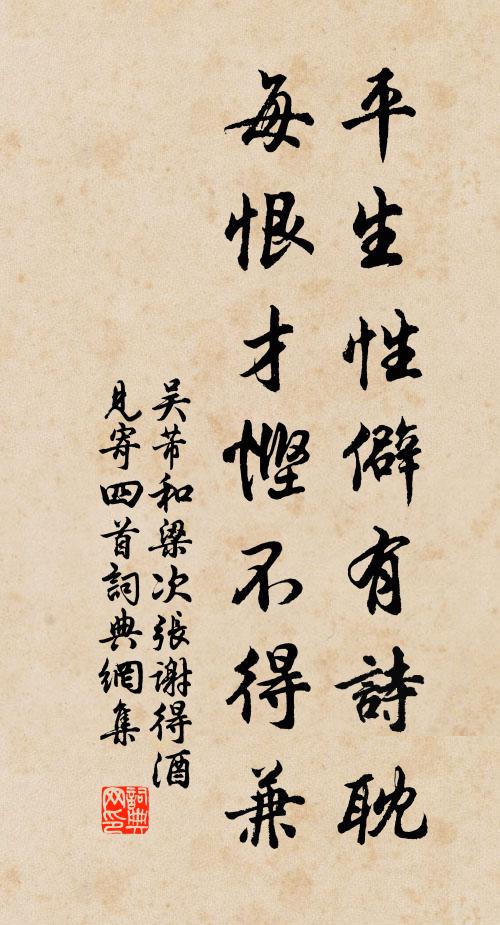 平生性僻有詩耽
每恨才慳不得兼
吳芾和梁次張謝得酒
見寄四首詞典網集
詞典
网印